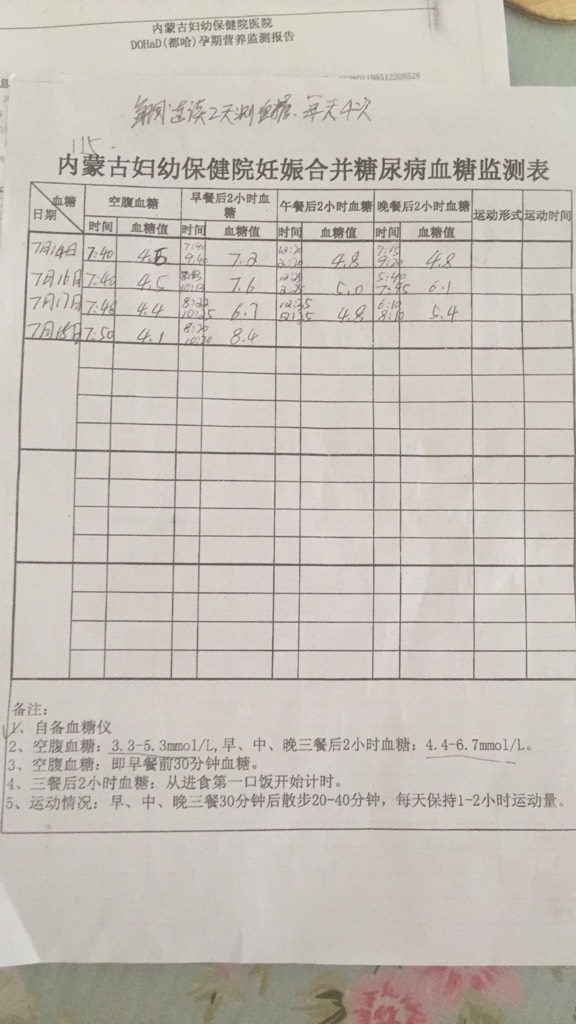 内蒙古妇幼保健院医院
DOHaD(都哈)孕期营养监测报告
息
每周连读2天测血糖、每天4次
115.
内蒙古妇幼保健院妊娠合并糖尿病血糖监测表
血糖 日期 空腹血糖 早餐后2小时血糖 午餐后2小时血糖 晚餐后2小时血糖 运动形式 运动时间
时间 血糖值 时间 血糖值 时间 血糖值 时间 血糖值
7月14日 7:40 4.6 7:40 9:40 7.2 4.8 7:15 4.8
7月16日 7:40 4.5 7.6 12:25 2:25 5.0 5:40 7:45 6.1
7月17日 7:48 4.4 8:22 10:25 6.7 12:35 4.8 6:10 8:10 5.4
7月18日 7:50 4.1 8:20 10:20 8.4
备注:
1、自备血糖仪
2、空腹血糖:3.3-5.3mmol/L,早、中、晚三餐后2小时血糖:4.4-6.7mmol/L。
3、空腹血糖:即早餐前30分钟血糖。
4、三餐后2小时血糖:从进食第一口饭开始计时。
5、运动情况:早、中、晚三餐30分钟后散步20-40分钟,每天保持1-2小时运动量。